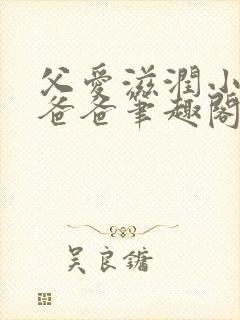 父爱滋润小
爸爸笔趣阁
吴良镛